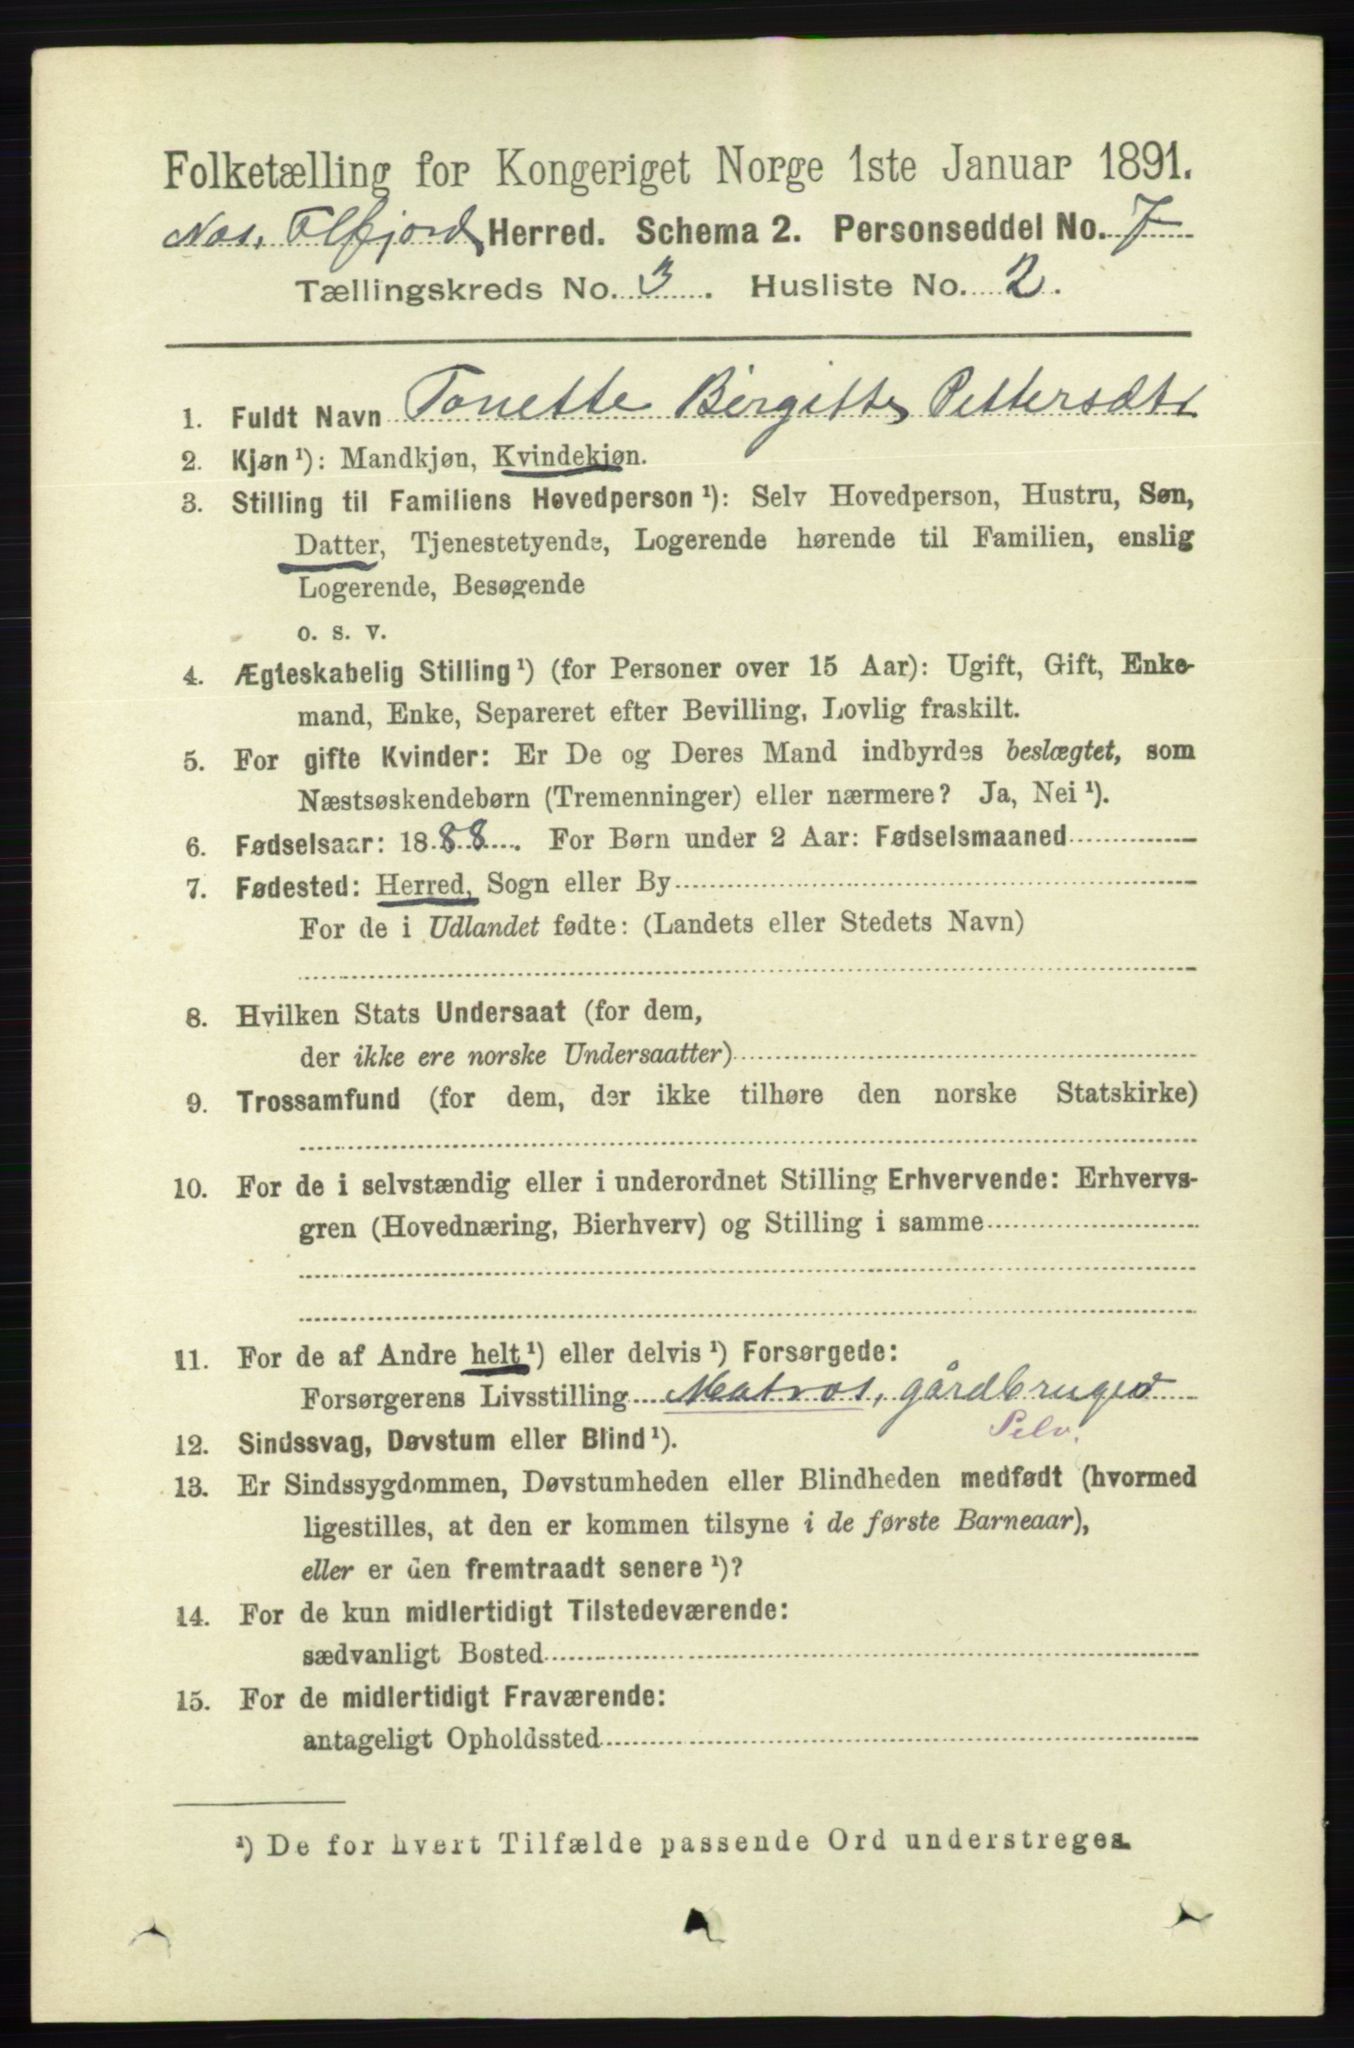 Folketælling for Kongeriget Norge 1ste Januar 1891.
Herred. Schema 2. Personseddel No. 7
Tællingskreds No. 3. Husliste No. 2.
1. Fuldt Navn Tonette Birgitte Pettersdtr
2. Kjøn ¹): Mandkjøn, Kvindekjøn.
3. Stilling til Familiens Hovedperson ¹): Selv Hovedperson, Hustru, Søn,
Datter, Tjenestetyende, Logerende hørende til Familien, enslig
Logerende, Besøgende
o. s. v.
4. Ægteskabelig Stilling ¹) (for Personer over 15 Aar): Ugift, Gift, Enke-
mand, Enke, Separeret efter Bevilling, Lovlig fraskilt.
5. For gifte Kvinder: Er De og Deres Mand indbyrdes beslægtet, som
Næstsøskendebørn (Tremenninger) eller nærmere? Ja, Nei ¹).
6. Fødselsaar: 1888. For Børn under 2 Aar: Fødselsmaaned
7. Fødested: Herred, Sogn eller By
For de i Udlandet fødte: (Landets eller Stedets Navn)
8. Hvilken Stats Undersaat (for dem,
der ikke ere norske Undersaatter)
9. Trossamfund (for dem, der ikke tilhøre den norske Statskirke)
10. For de i selvstændig eller i underordnet Stilling Erhvervende: Erhvervs-
gren (Hovednæring, Bierhverv) og Stilling i samme
11. For de af Andre helt ¹) eller delvis ¹) Forsørgede:
Forsørgerens Livsstilling Matros, gårdbruger
Selv.
12. Sindssvag, Døvstum eller Blind ¹).
13. Er Sindssygdommen, Døvstumheden eller Blindheden medfødt (hvormed
ligestilles, at den er kommen tilsyne i de første Barneaar),
eller er den fremtraadt senere ¹)?
14. For de kun midlertidigt Tilstedeværende:
sædvanligt Bosted
15. For de midlertidigt Fraværende:
antageligt Opholdssted
¹) De for hvert Tilfælde passende Ord understreges.